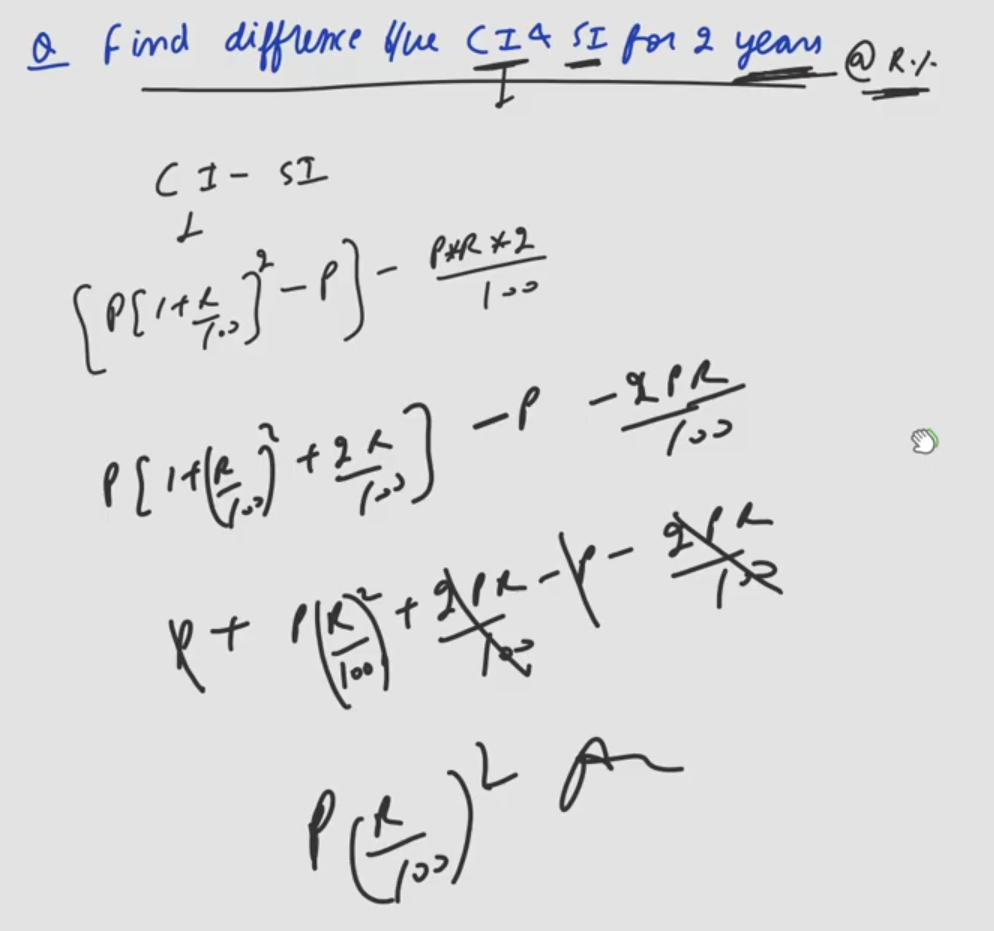 Q Find diffrence b/w CI & SI for 2 years @ R.%
CI - SI
[P[1+R/100]² - P] - P*R*2/100
P[1+(R/100)² + 2R/100] - P - 2PR/100
P + P(R/100)² + 2PR/100 - P - 2PR/100
P(R/100)²